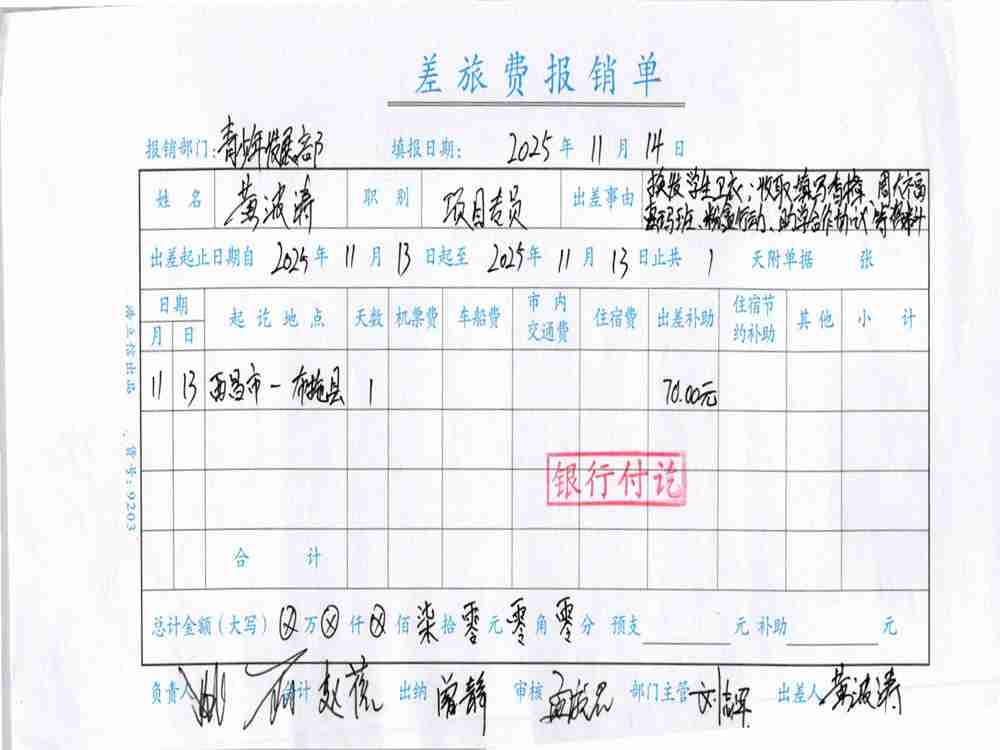 差旅费报销单
报销部门：青少年发展部 填报日期： 2025 年 11 月 14 日
姓名 黄波涛 职别 项目专员 出差事由 换发学生卫衣；收取填写有误
助学合作协议等材料
出差起止日期自 2025 年 11 月 13 日起至 2025 年 11 月 13 日止共 1 天附单据 张
日期 起讫地点 天数 机票费 车船费 市内交通费 住宿费 出差补助 住宿节约补助 其他 小计
月 日
11 13 西昌市-布拖县 1 70.00元
银行付讫
合计
总计金额（大写）ⓧ万ⓧ仟ⓧ佰柒拾零元零角零分 预支 元 补助 元
负责人 会计 赵 出纳 曾静 审核 部门主管 刘 出差人 黄波涛
货号：9203